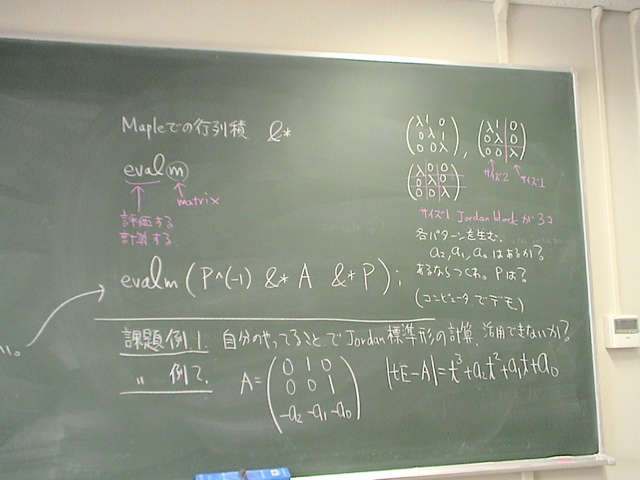 Mapleでの行列積 &*
evalm
matrix
評価する
計算する
evalm (P^(-1) &* A &* P);
(λ 1 0
0 λ 1
0 0 λ),
(λ 1 0
0 λ 0
0 0 λ)
サイズ2 サイズ1
(λ 0 0
0 λ 0
0 0 λ)
サイズ1 Jordan block が 3コ
各パターンを生む、
a₂, a₁, a₀ はあるか?
あるならつくれ。Pは?
(コンピュータでデモ)
課題例1. 自分のやってることでJordan標準形の計算、活用できないか?
〃 例2. A= (0 1 0
0 0 1
-a₂ -a₁ -a₀)
|tE-A|=t³+a₂t²+a₁t+a₀